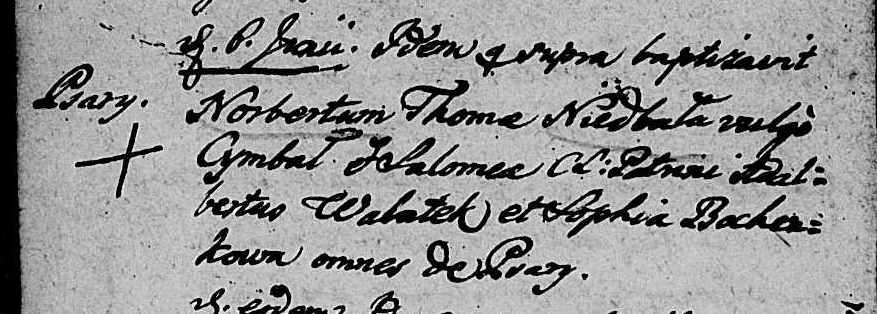 d. 6. Junii. Idem q supra baptizavit
Psary. Norbertum Thomæ Niedbała vulgo
Cymbał & Salomeæ CL: Patrini Adal=
bertus Walatek et Sophia Bochen=
kowa omnes de Psary.
d. eodem